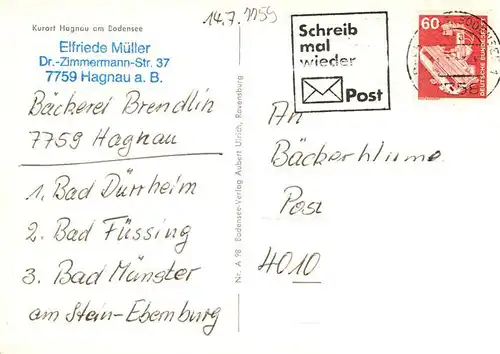 Kurort Hagnau am Bodensee
14.7.
Elfriede Müller
Dr.-Zimmermann-Str. 37
7759 Hagnau a. B.
Bäckerei Brendlin
7759 Hagnau
1. Bad Dürrheim
2. Bad Füssing
3. Bad Münster
am Stein-Ebernburg
Nr. A 98 Bodensee-Verlag Aubert Ulrich, Ravensburg
Schreib
mal
wieder
Post
60
DEUTSCHE BUNDESPOST
An
Bäckerblume
Post
4010